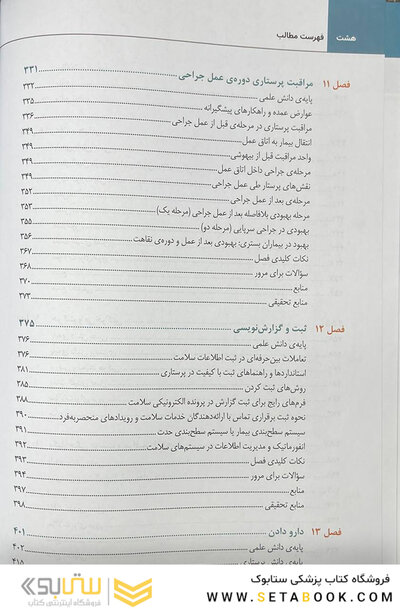 هشت فهرست مطالب
فصل ۱۱ مراقبت پرستاری دوره‌ی عمل جراحی ۳۳۱
پایه‌ی دانش علمی ۳۳۲
عوارض عمده و راهکارهای پیشگیرانه ۳۳۵
مراقبت پرستاری در مرحله‌ی قبل از عمل جراحی ۳۳۶
انتقال بیمار به اتاق عمل ۳۴۹
واحد مراقبت قبل از بیهوشی ۳۴۹
مرحله‌ی جراحی داخل اتاق عمل ۳۴۹
نقش‌های پرستار طی عمل جراحی ۳۴۹
مرحله‌ی بعد از عمل جراحی ۳۵۲
مرحله بهبودی بلافاصله بعد از عمل جراحی (مرحله یک) ۳۵۳
بهبودی در جراحی سرپایی (مرحله دو) ۳۵۵
بهبود در بیماران بستری: بهبودی بعد از عمل و دوره‌ی نقاهت ۳۵۶
نکات کلیدی فصل ۳۶۷
سؤالات برای مرور ۳۶۸
منابع ۳۷۰
منابع تحقیقی ۳۷۳
فصل ۱۲ ثبت و گزارش‌نویسی ۳۷۵
پایه‌ی دانش علمی ۳۷۶
تعاملات بین‌حرفه‌ای در ثبت اطلاعات سلامت ۳۷۶
استانداردها و راهنماهای ثبت با کیفیت در پرستاری ۳۸۱
روش‌های ثبت کردن ۳۸۵
فرم‌های رایج برای ثبت گزارش در پرونده الکترونیکی سلامت ۳۸۸
نحوه ثبت برقراری تماس با ارائه‌دهندگان خدمات سلامت و رویدادهای منحصربه‌فرد ۳۹۰
سیستم سطح‌بندی بیمار یا سیستم سطح‌بندی حدت ۳۹۱
انفورماتیک و مدیریت اطلاعات در سیستم‌های سلامت ۳۹۲
نکات کلیدی فصل ۳۹۳
سؤالات برای مرور ۳۹۴
منابع ۳۹۷
منابع تحقیقی ۳۹۸
فصل ۱۳ دارو دادن ۴۰۱
پایه‌ی دانش علمی ۴۰۲
پایه‌ی دانش پرستاری ۴۱۸
فروشگاه کتاب پزشکی ستابوک
WWW.SETABOOK.COM
ستابوک
فروشگاه اینترنتی کتاب